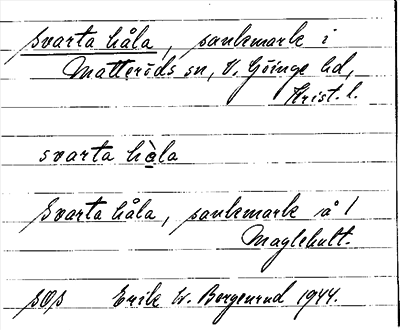 svarta håla, sankmark i
Matteröds sn, V. Göinge hd,
Krist. l.
svarta håla
Svarta håla, sankmark å 1
Maglehult.
Erik W. Borgenrud 1944.